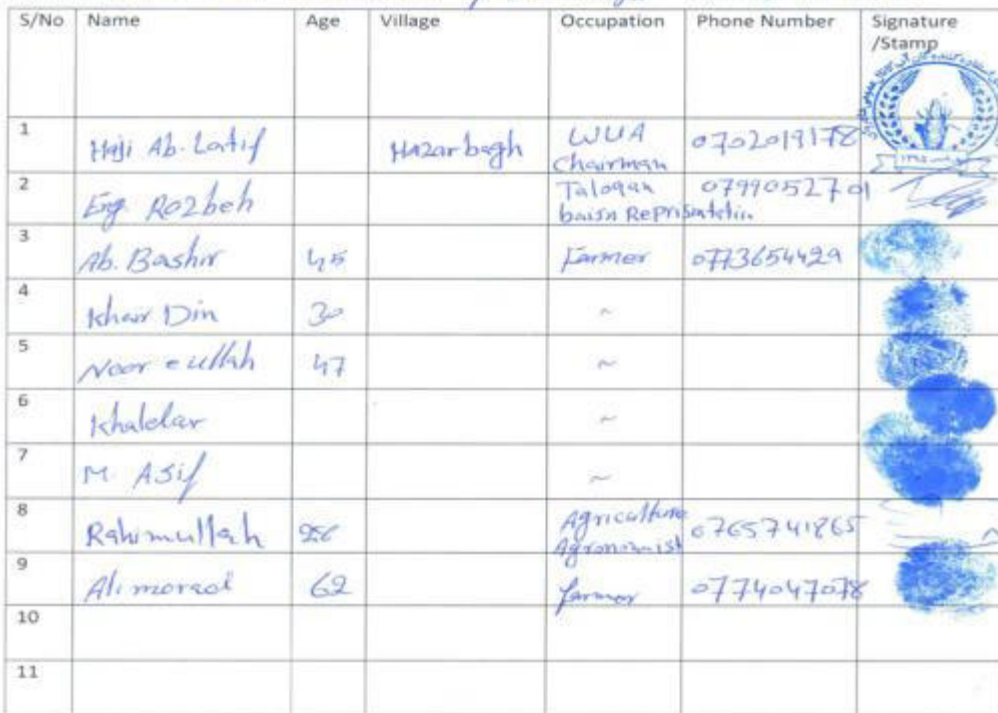 S/No Name Age Village Occupation Phone Number Signature /Stamp
1 Haji Ab. Latif Hazarbagh WUA Chairman 0702019178
۱۳۹۵
2 Eng. Rozbeh Taloqan 0799052701
3 Ab. Bashir 45 Farmer 0773654429
4 Khair Din 30 ~
5 Noor eullah 47 ~
6 Khaldar ~
7 M. Asif ~
8 Rahimullah 26 Agriculture Agronomist 0765741865
9 Ali morad 62 farmer 0774047078
10
11